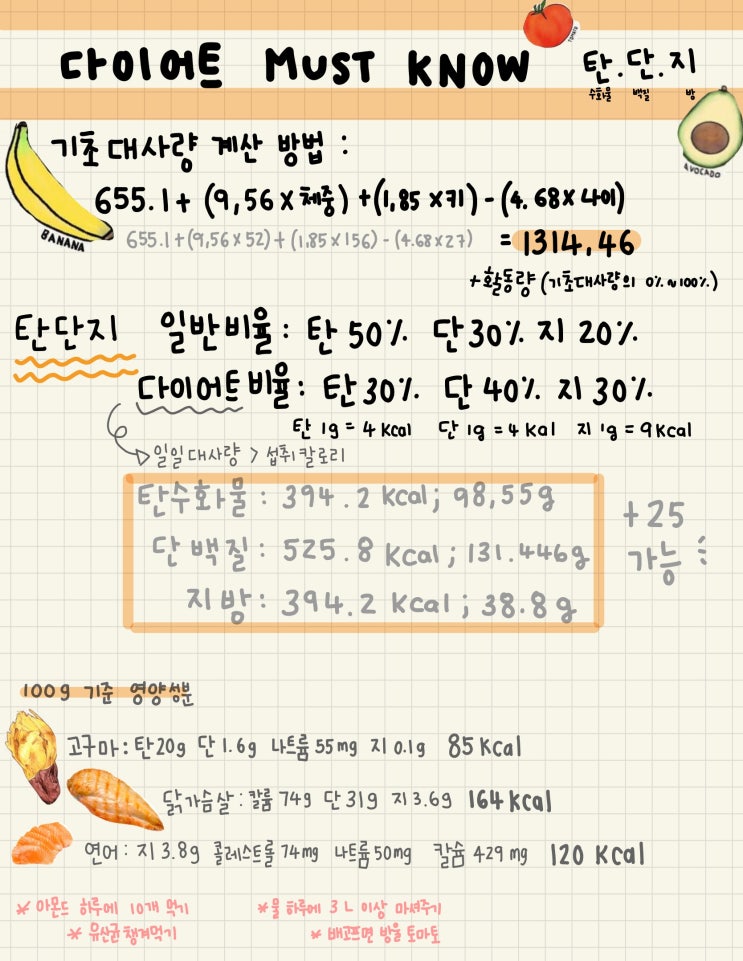 다이어트 MUST KNOW 탄.단.지
수화물 백질 방
TOMATO
AVOCADO
BANANA
기초대사량 계산 방법 :
655.1+ (9,56×체중) +(1,85×키) - (4.68×나이)
655.1+(9,56×52)+(1,85×156) - (4.68×27) = 1314,46
+활동량 (기초대사량의 0%~100%)
탄단지 일반비율: 탄50% 단30% 지20%
다이어트비율: 탄30% 단40% 지30%
탄 1g = 4Kcal 단 1g = 4Kal 지 1g = 9Kcal
일일대사량 > 섭취칼로리
탄수화물: 394.2 Kcal; 98,55g
단백질: 525.8 Kcal; 131.446g
지방: 394.2 Kcal; 38.8g
+25
가능
100g 기준 영양성분
고구마: 탄20g 단1.6g 나트륨55mg 지0.1g 85Kcal
닭가슴살: 칼륨74g 단31g 지3.6g 164Kcal
연어: 지3.8g 콜레스트롤74mg 나트륨50mg 칼슘429mg 120 Kcal
* 아몬드 하루에 10개 먹기 *물 하루에 3L 이상 마셔주기
* 유산균챙겨먹기 * 배고프면 방울 토마토